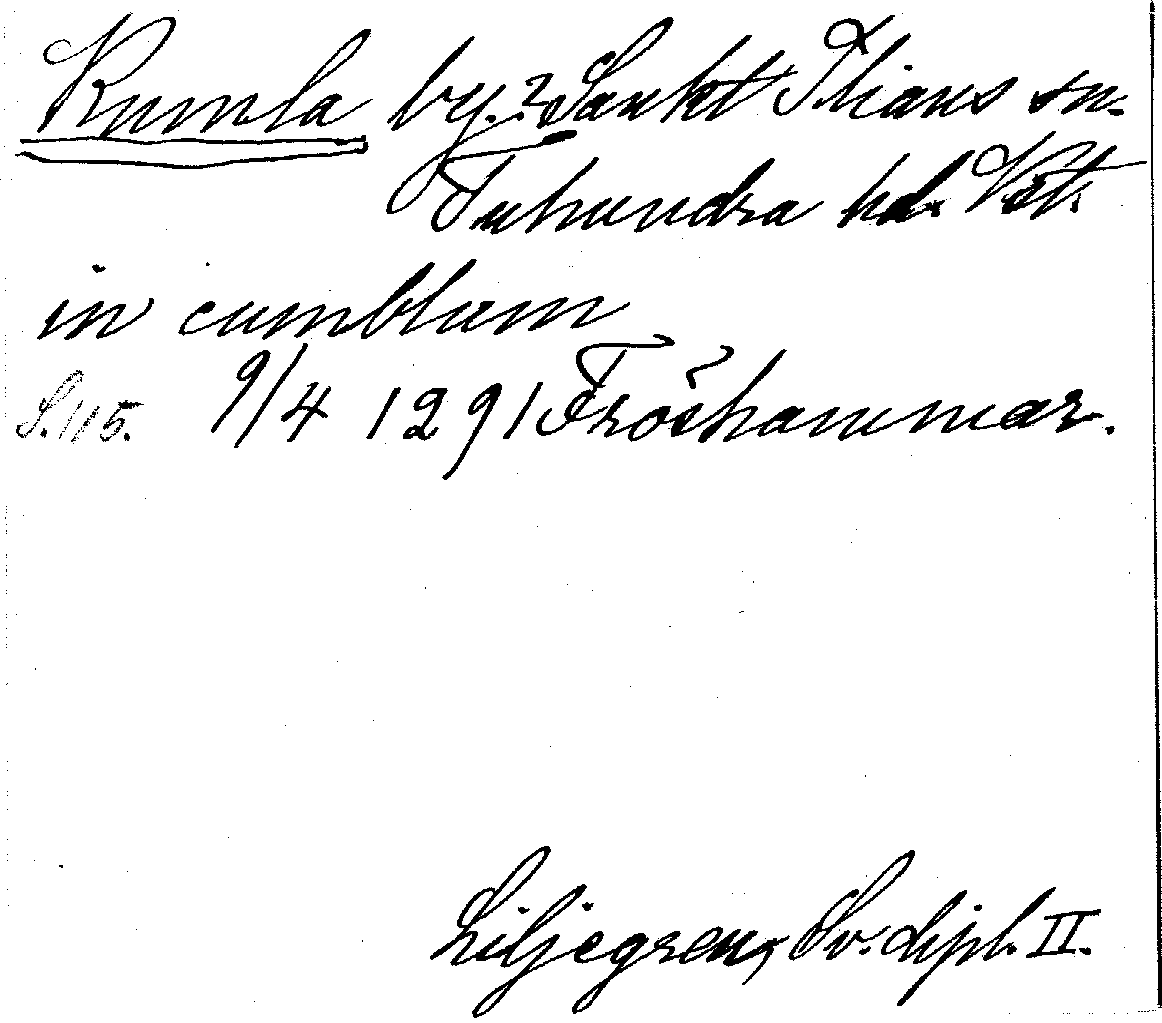 Kumla by.? Sankt Ilians sn.
Tuhundra hd. Vstm.
in cumblum
S. 115. 9/4 1291 Fröshammar.
Liljegren, Sv. dipl. II.